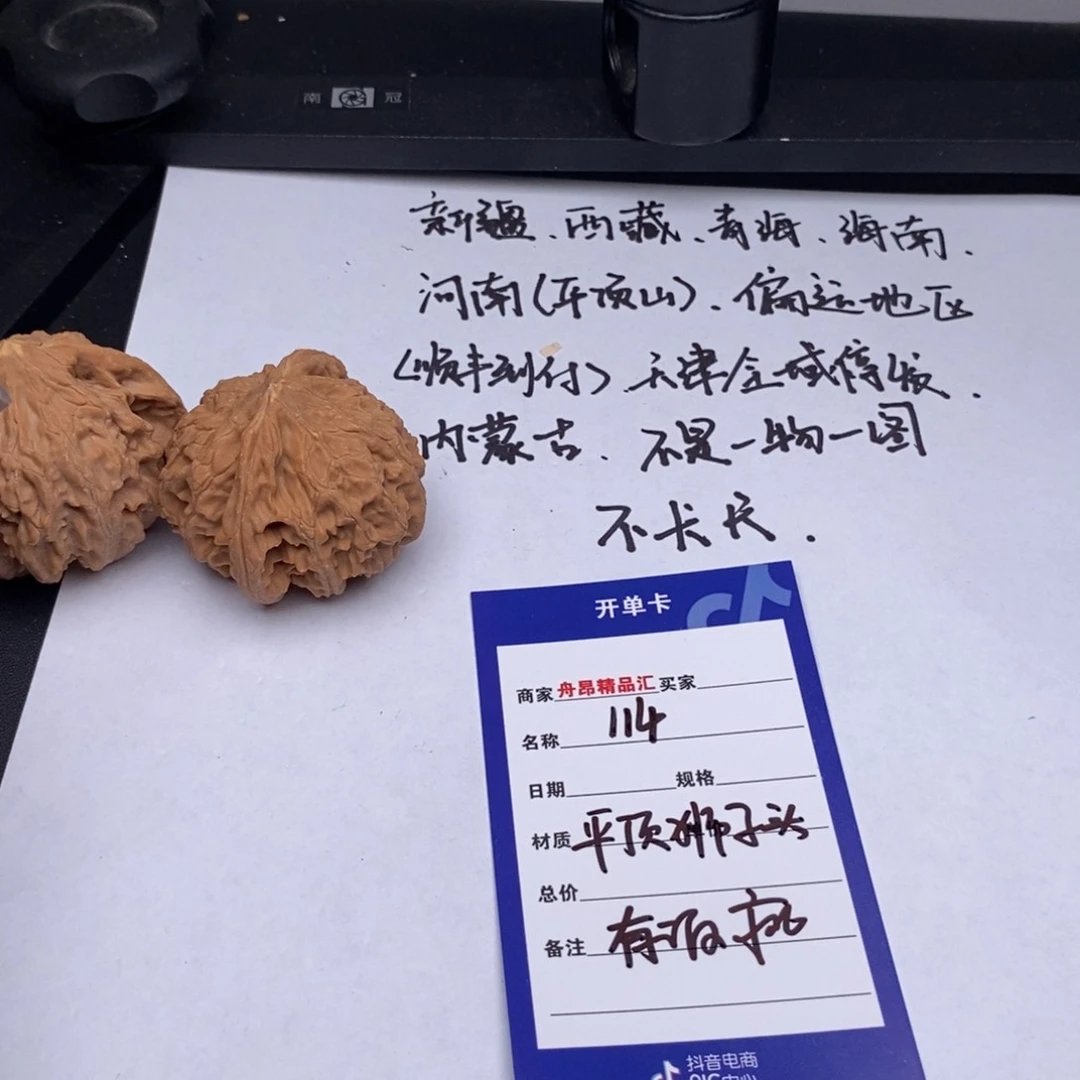 南 冠
新疆、西藏、青海、海南.
河南(平顶山)、偏远地区
(顺丰到付)天津全域停发.
内蒙古、不是一物一图
不卡尺.
开单卡
商家 舟昂精品汇 买家
名称 114
日期 规格
材质 平顶狮子头
总价
备注 有瑕
抖音电商
QIC中心